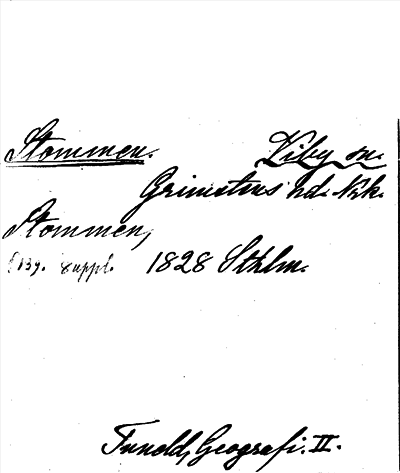 Stommen. Viby sn.
Grimstens hd. Nrk.
Stommen,
s. 139. suppl. 1828 Sthlm.
Tuneld, Geografi. II.